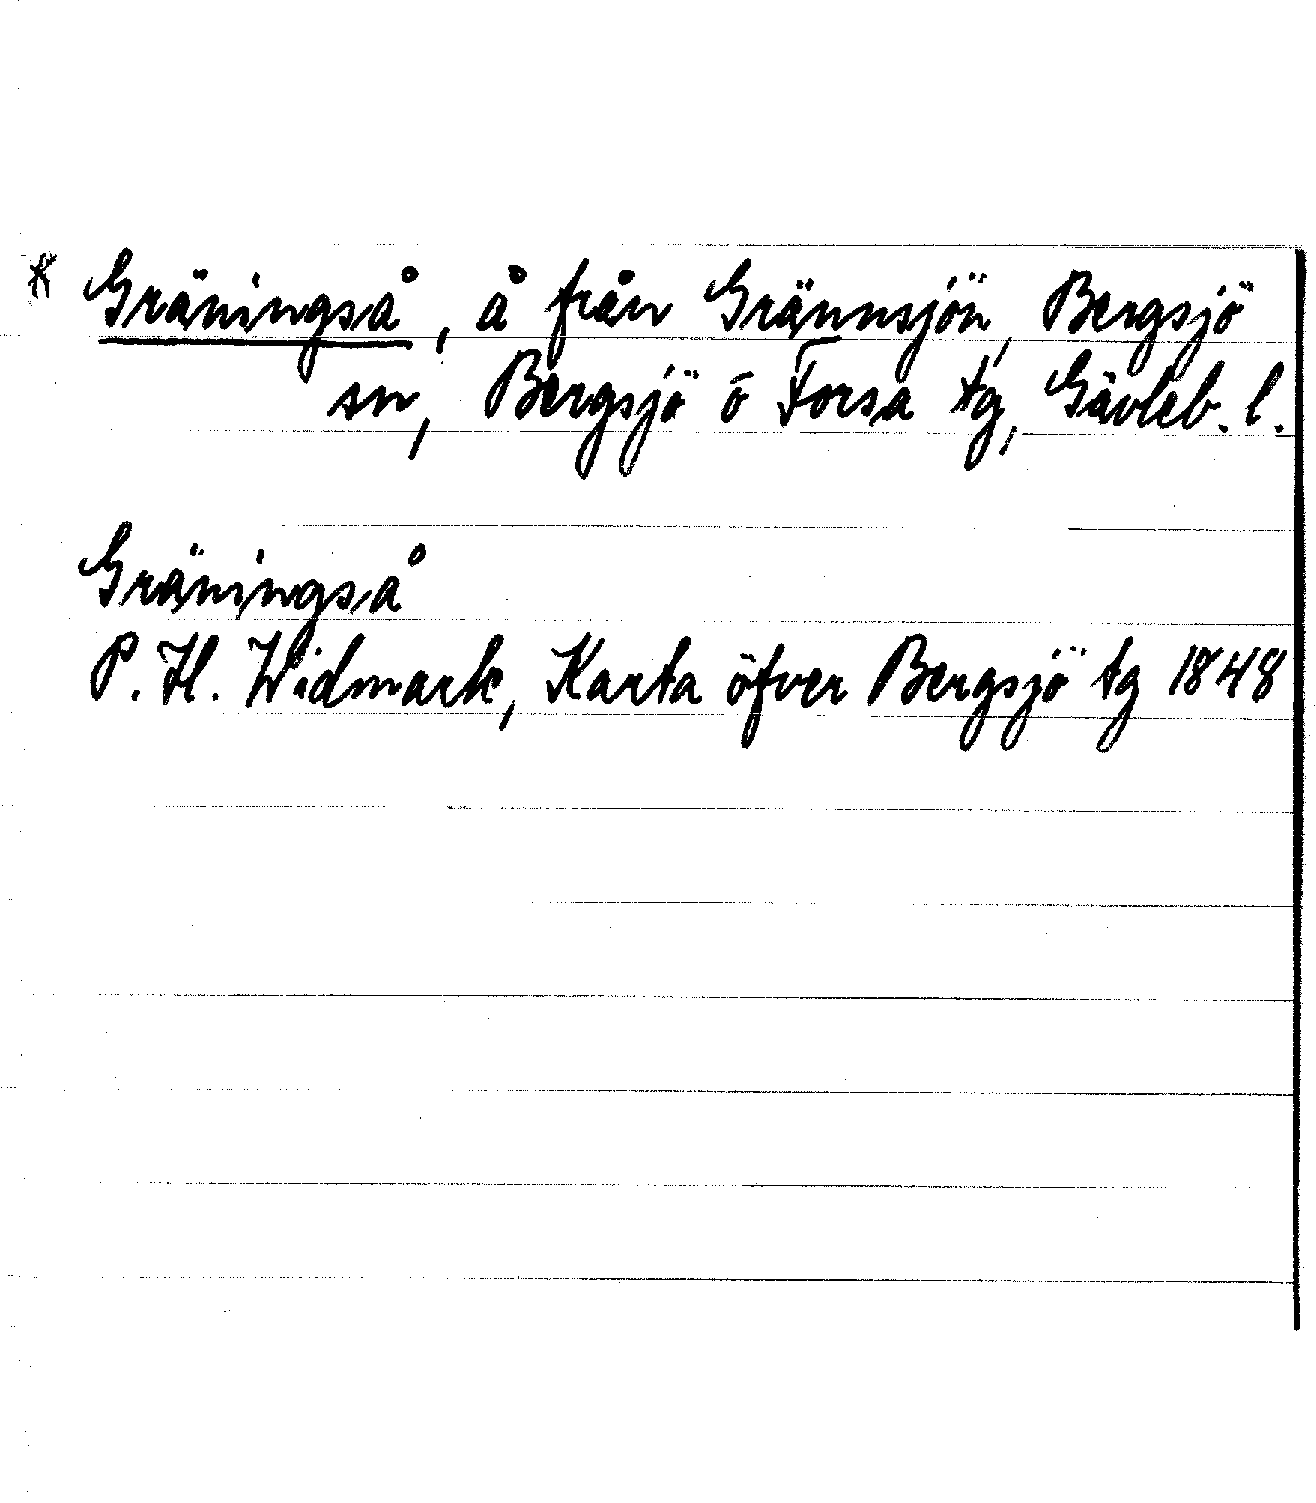 * Gräningså, å från Grännsjön, Bergsjö
sn, Bergsjö o Forsa tg, Gävleb. l.
Gräningså
P. H. Widmark, Karta öfver Bergsjö tg 1848